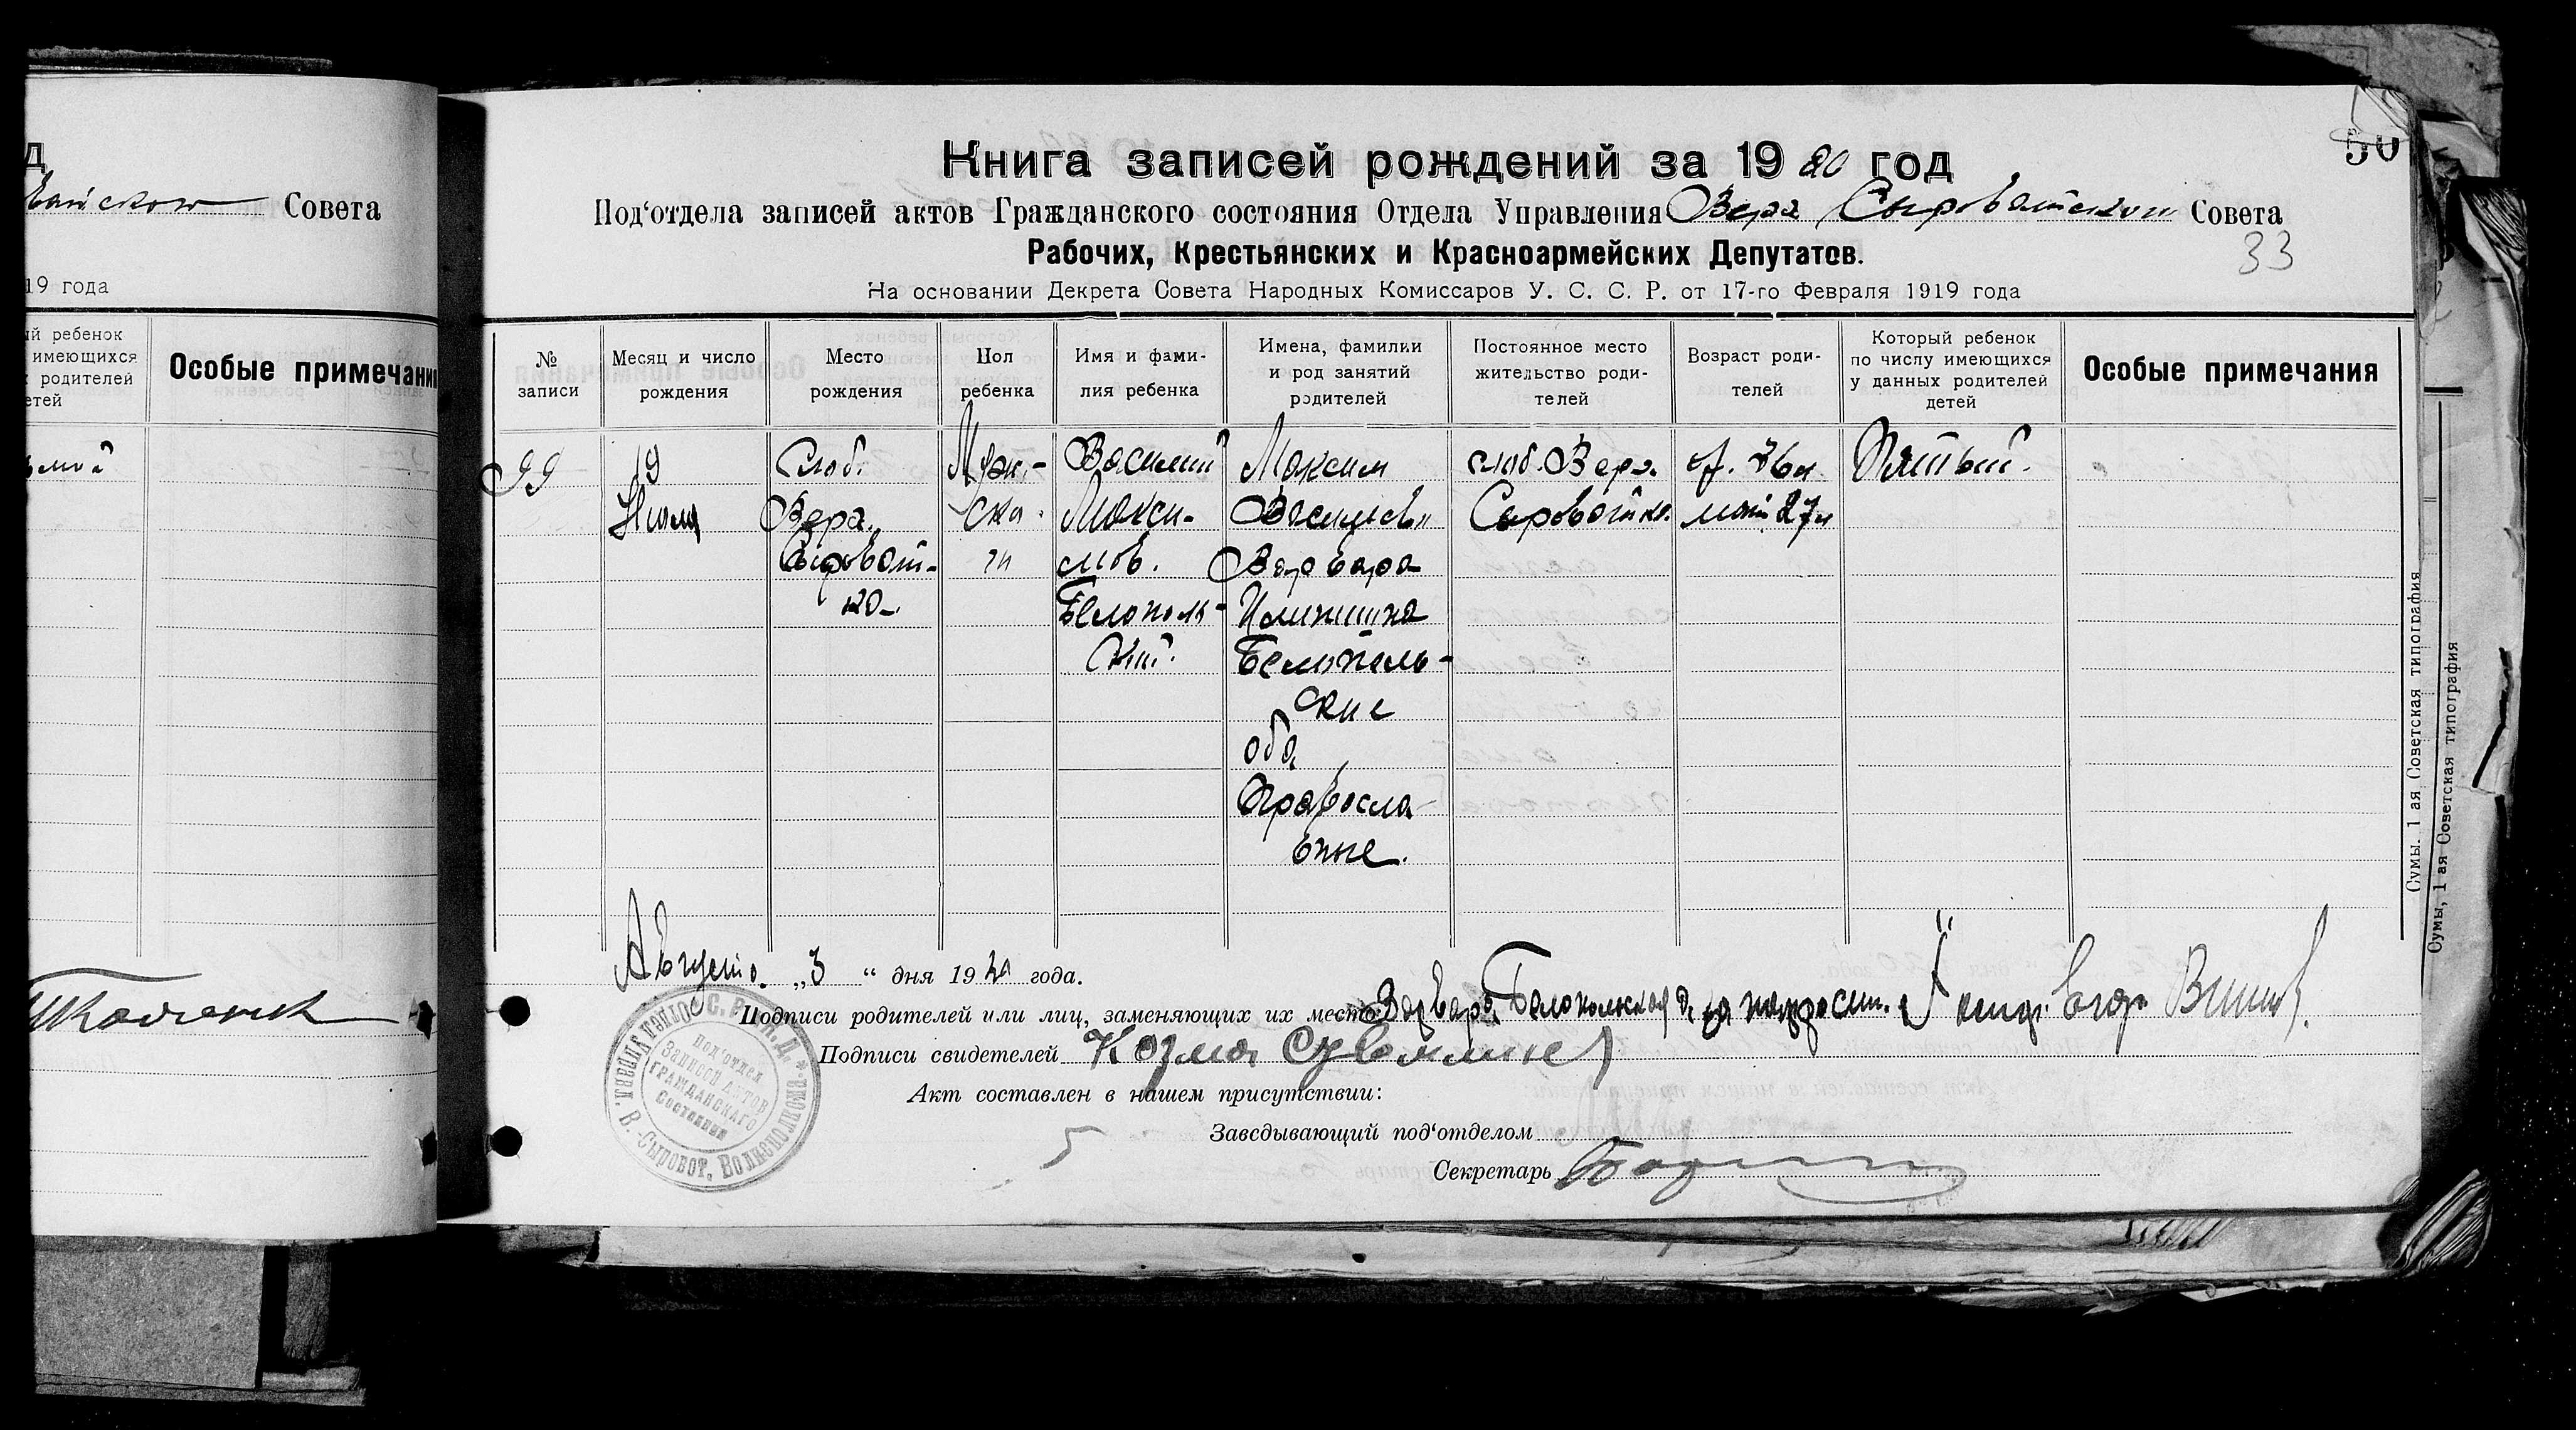 д
Совета
19 года
ый ребенок
имеющихся
родителей
етей
Особые примечани
50
Книга записей рождений за 19 20 год
Под‘отдела записей актов Гражданского состояния Отдела Управления Верх Сыроватского Совета
33
Рабочих, Крестьянских и Красноармейских Депутатов.
На основании Декрета Совета Народных Комиссаров У. С. С. Р. от 17-го Февраля 1919 года
№ записи
Месяц и число рождения
Место рождения
Пол ребенка
Имя и фами-
лия ребенка
Имена, фамилии
и род занятий
родителей
Постоянное место
жительство роди-
телей
Возраст роди-
телей
Который ребенок
по числу имеющихся
у данных родителей
детей
Особые примечания
99
19
Июля
Слоб.
Верх.
Сыроват-
ка.
Муж.-
ска.
Василий
Макси-
мов.
Белополь-
ский.
Максим
Васильев
Варвара
Белополь-
ские
оба
Правосла-
вные.
слоб. Верх.
Сыроватка.
36
27
Пятый.
Августа „3“ дня 1920 года.
Подписи родителей или лиц, заменяющих их место: Варвара Белопольская
Подписи свидетелей Козма
Акт составлен в нашем присутствии:
Заведывающий под‘отделом
Секретарь
под‘отдел
Записей Актов
Гражданскаго
Состояния
Сумы. 1 ая Советская типография
Сумы, 1 ая Советская типография